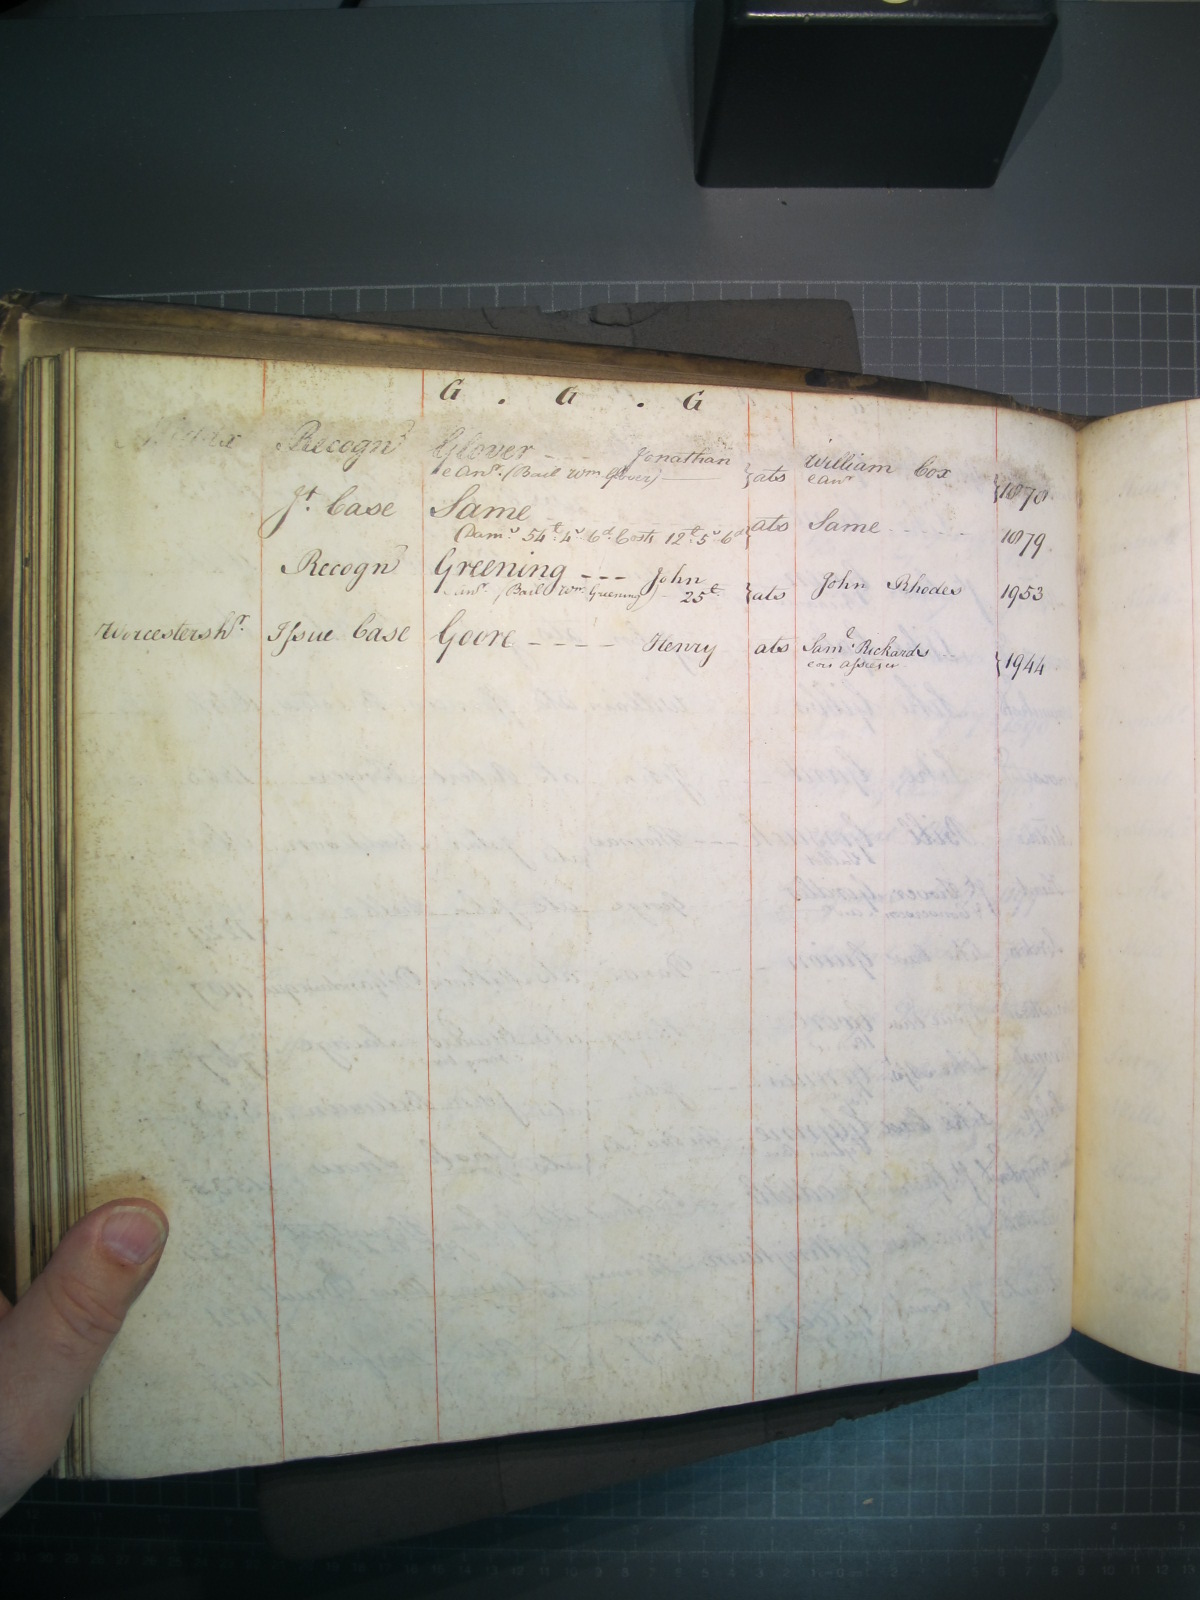 G . G . G
Midd'x Recogn.^s Glover --- Jonathan } ats William Cox } 1878
& an.^r (Bail Wm Glover) ex an.^r
J.^t Case Same ats Same ------ 1879
(Dam.^s 54.^£ 4.^s 6.^d Costs 12.^£ 5.^s 6.^d
Recogn.^s Greening --- John } ats John Rhodes 1953
& an.^r (Bail Wm Greening) 25.^£
Worcestersh.^r Issue Case Goore ---- Henry ats Sam.^l Rickards } 1944